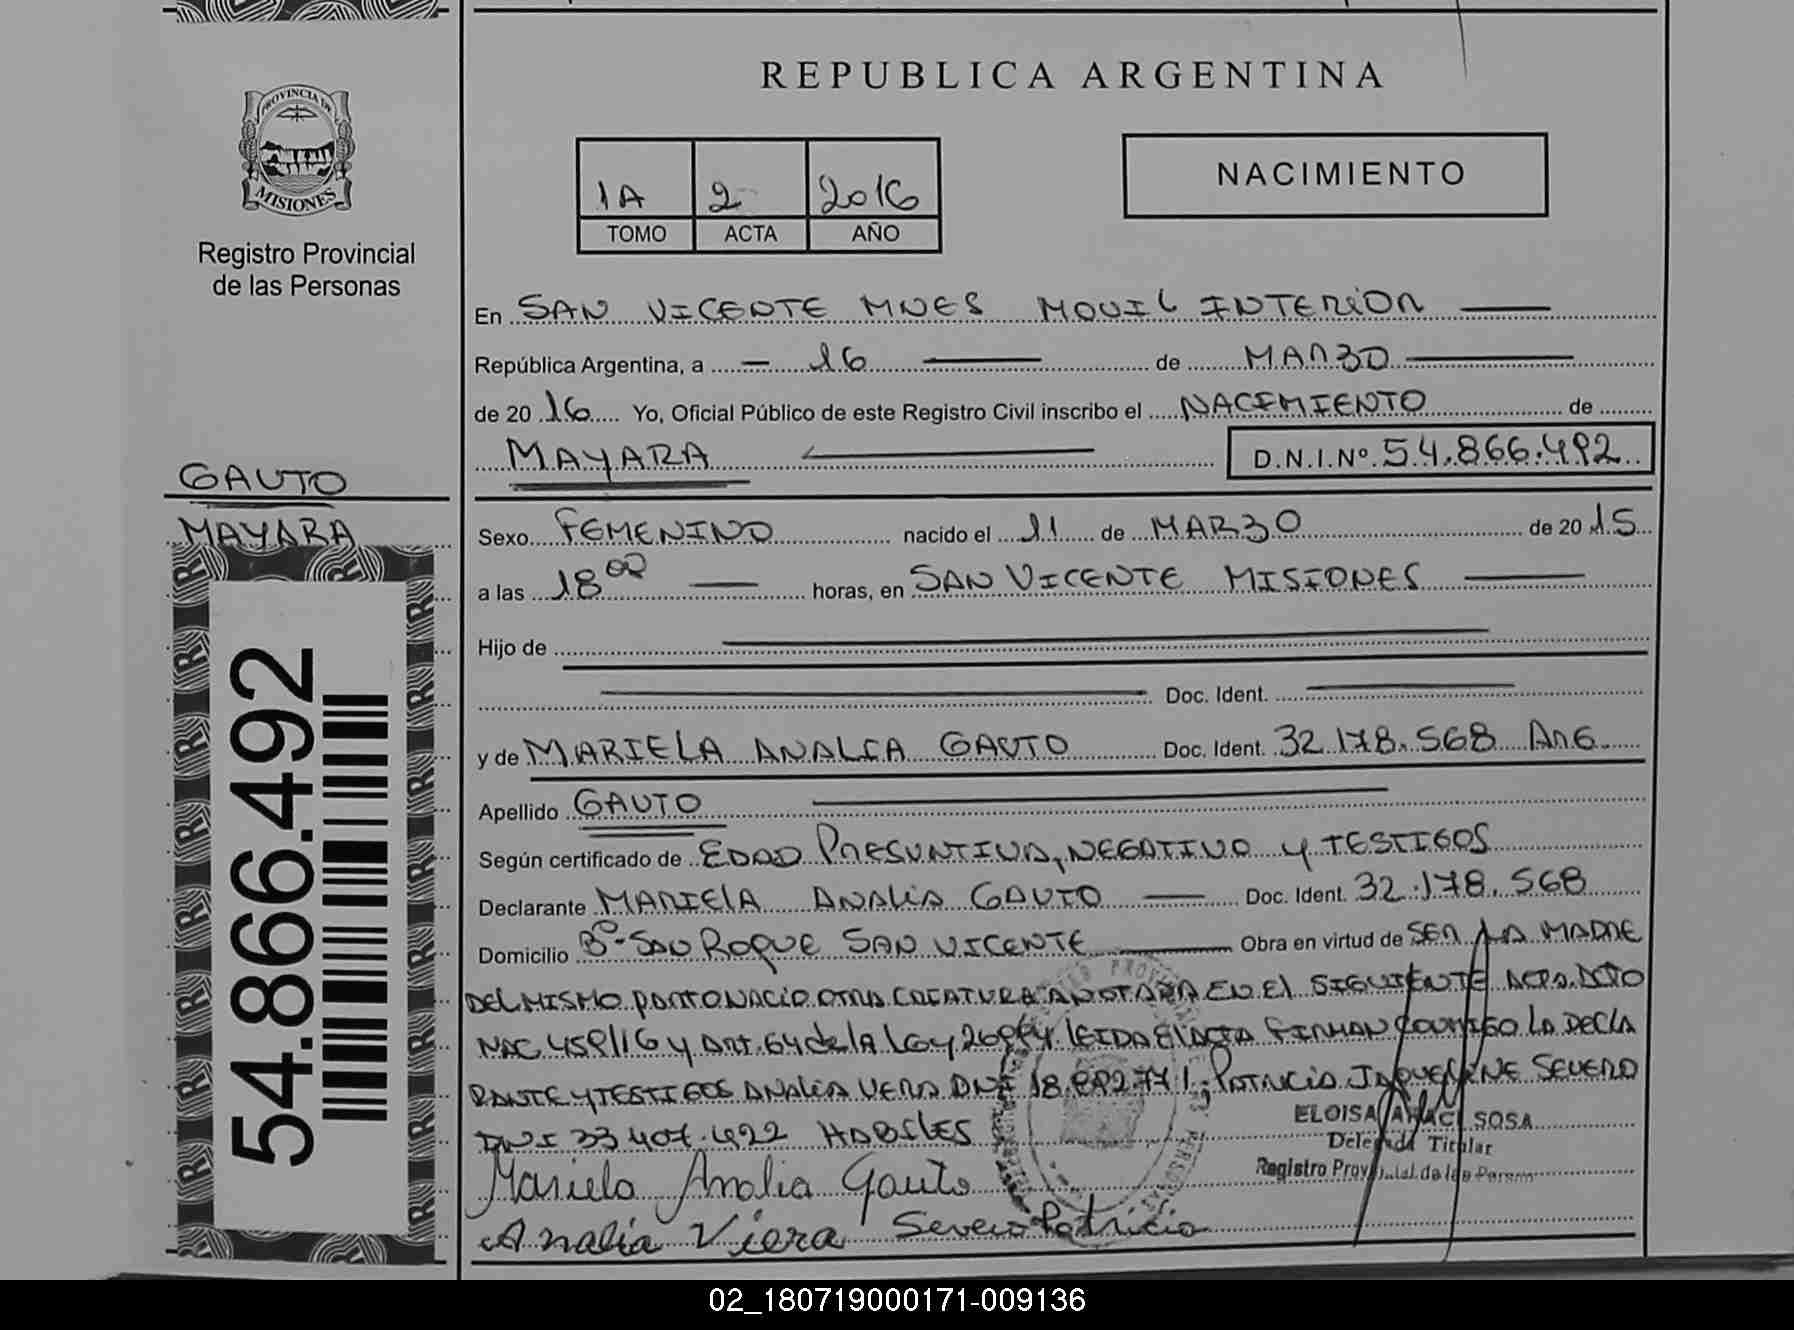 REPUBLICA ARGENTINA
PROVINCIA DE
MISIONES
Registro Provincial
de las Personas
1A 2 2016
TOMO ACTA AÑO
NACIMIENTO
En SAN VICENTE MNES MOVIL INTERIOR
República Argentina, a 16 de MARZO
de 20 16 Yo, Oficial Público de este Registro Civil inscribo el NACIMIENTO de
MAYARA
D.N.I.Nº 54.866.492
GAUTO
MAYARA
54.866.492
Sexo FEMENINO nacido el 11 de MARZO de 20 15
a las 18 00 horas, en SAN VICENTE MISIONES
Hijo de
Doc. Ident.
y de MARIELA ANALIA GAUTO Doc. Ident. 32.178.568 ARG
Apellido GAUTO
Según certificado de EDAD PRESUNTIVA, NEGATIVO Y TESTIGOS
Declarante MARIELA ANALIA GAUTO Doc. Ident. 32.178.568
Domicilio Bº SAN ROQUE SAN VICENTE Obra en virtud de SER LA MADRE
DEL MISMO PARTO NACIO OTRA CREATURA ANOTADA EN EL SIGUIENTE ACTA. DCTO
NAC 459/16 Y ART. 64 de la LEY LEIDA EL ACTA FIRMAN CONMIGO LA DECLA
RANTE Y TESTIGOS ANALIA VERA DNI PATRICIA JAQUELINE SEVERO
DNI 33.407.422 HABILES
ELOISA ARACI SOSA
Delegada Titular
Registro Provincial de las Personas
Mariela Analia Gauto
Analia Viera Severo Patricia
02_180719000171-009136